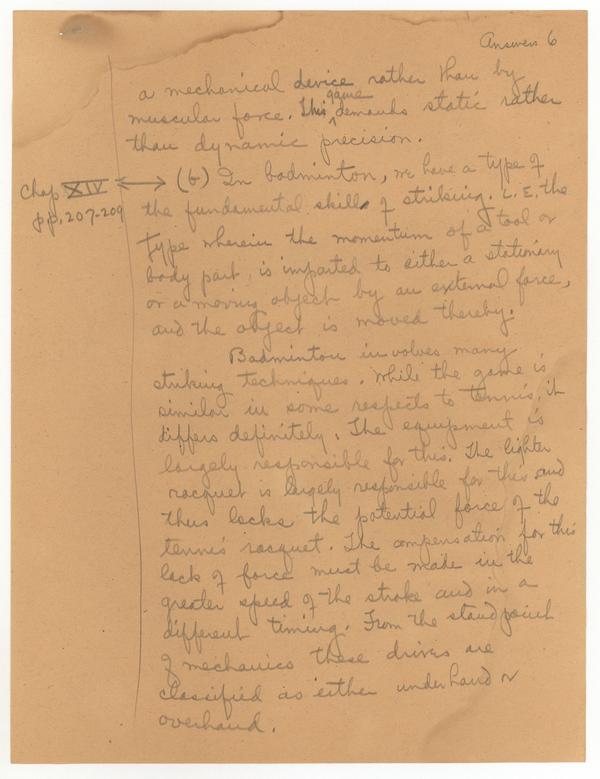 Answers 6
a mechanical device rather than by
muscular force. This game demands static rather
than dynamic precision.
Chap XIV
pp. 207-209
(b) In badminton, we have a type of
the fundamental skill of striking. I.E. the
type wherein the momentum of a tool or
body part, is imparted to either a stationary
or a moving object by an external force,
and the object is moved thereby.
Badminton involves many
striking techniques. While the game is
similar in some respects to tennis, it
differs definitely. The equipment is
largely responsible for this. The lighter
racquet is largely responsible for this and
thus lacks the potential force of the
tennis racquet. The compensation for this
lack of force must be made in the
greater speed of the stroke and in a
different timing. From the standpoint
of mechanics these drives are
classified as either underhand or
overhand.